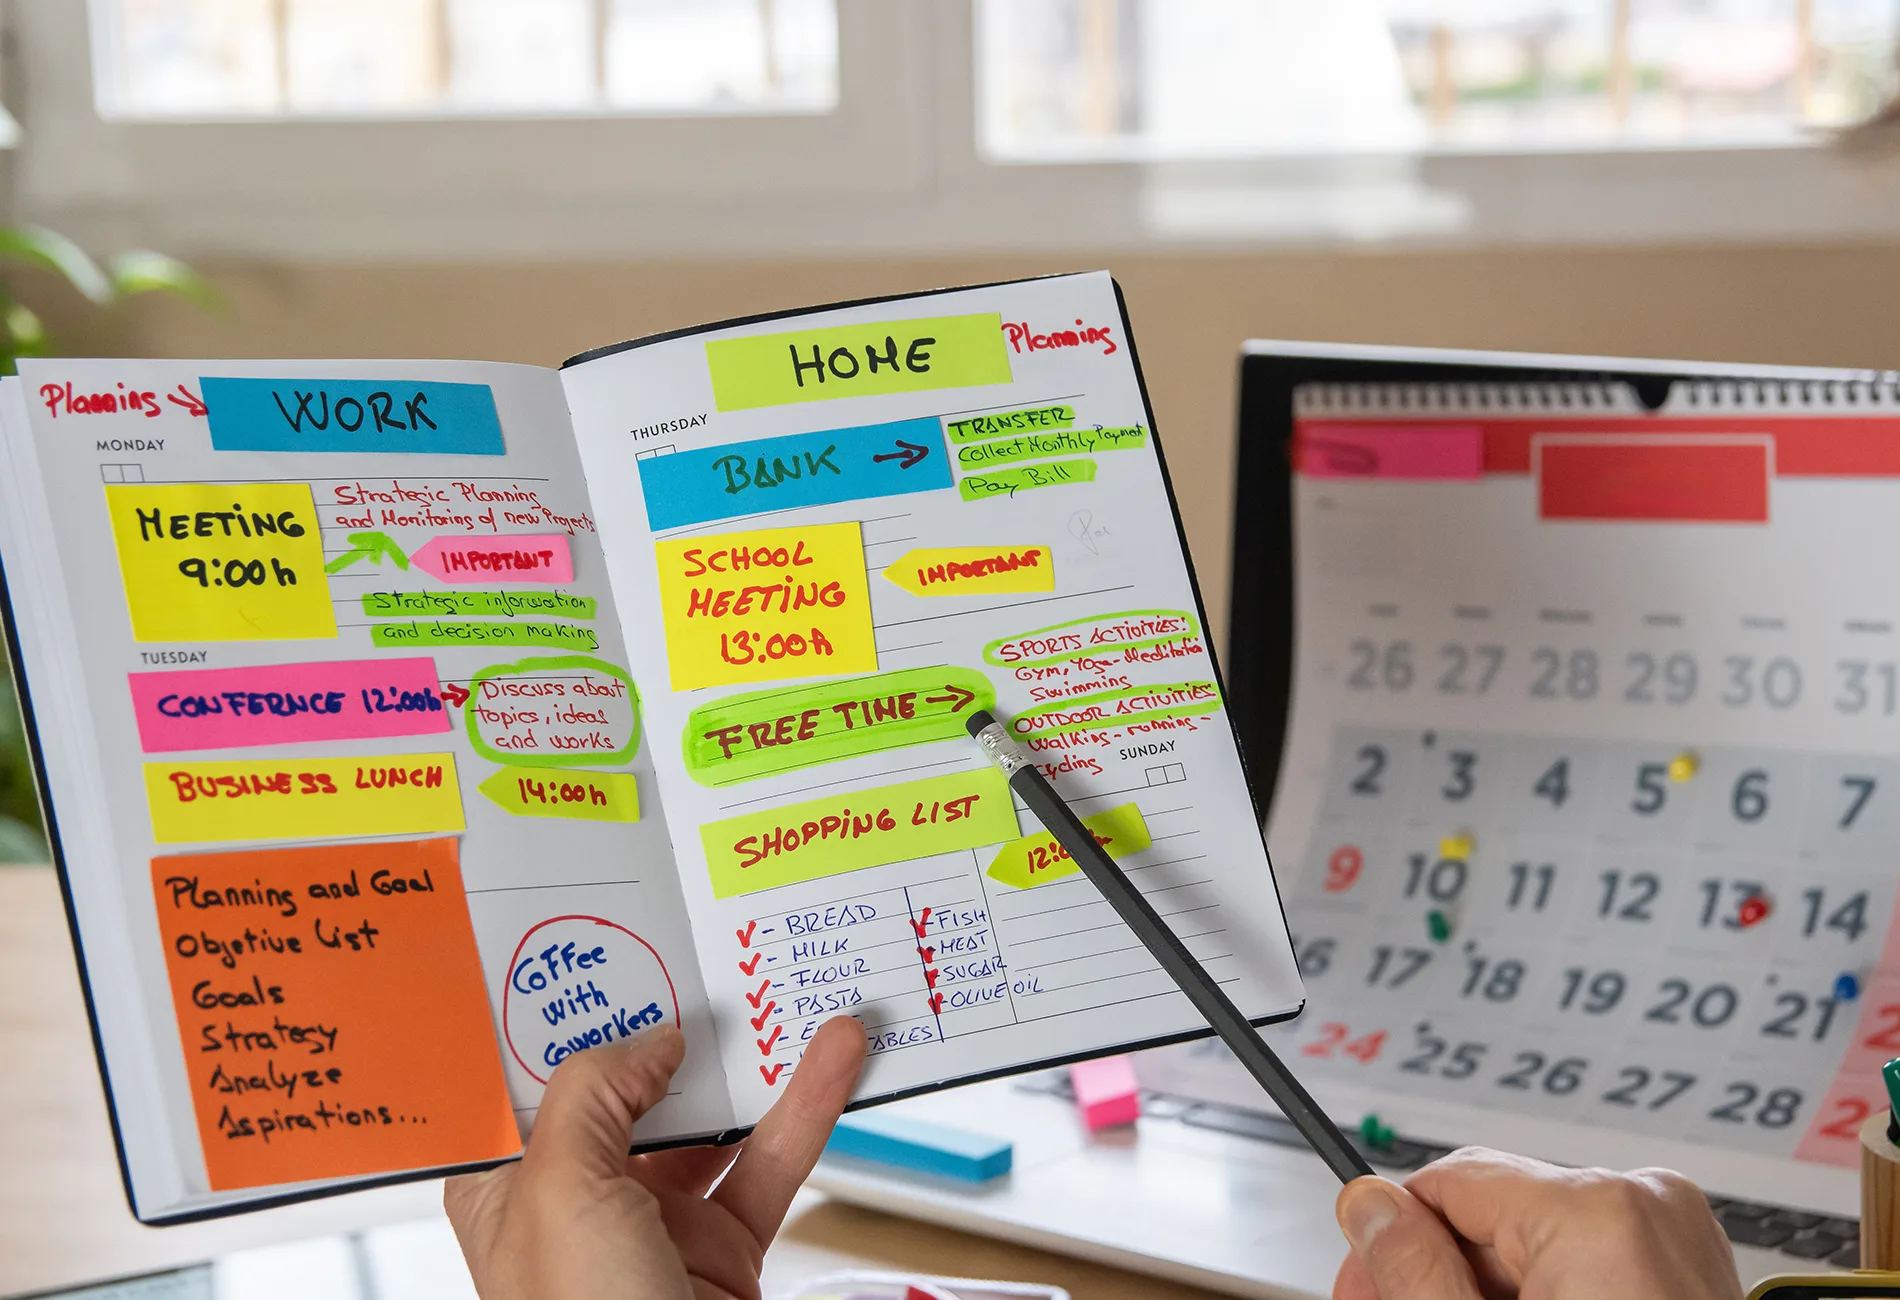 Planning
WORK
MONDAY
MEETING
9:00h
Strategic Planning
and Monitoring of new Projects
IMPORTANT
Strategic information
and decision making
TUESDAY
CONFERNCE 12:00h
Discuss about
topics, ideas
and works
BUSINESS LUNCH
14:00h
Planning and Goal
Objetive List
Goals
Strategy
Analyze
Aspirations...
Coffee
with
coworkers
HOME
Planning
THURSDAY
BANK
TRANSFER
Collect Monthly Payment
Pay Bill
SCHOOL
MEETING
13:00h
IMPORTANT
FREE TIME
SPORTS ACTIVITIES:
Gym, Yoga-Meditation
Swimming
OUTDOOR ACTIVITIES
Walking - running -
cycling
SUNDAY
SHOPPING LIST
- BREAD
- MILK
- FLOUR
- PASTA
- FISH
- MEAT
- SUGAR
- OLIVE OIL
26 27 28 29 30 31
2 3 4 5 6 7
9 10 11 12 13 14
17 18 19 20 21
24 25 26 27 28